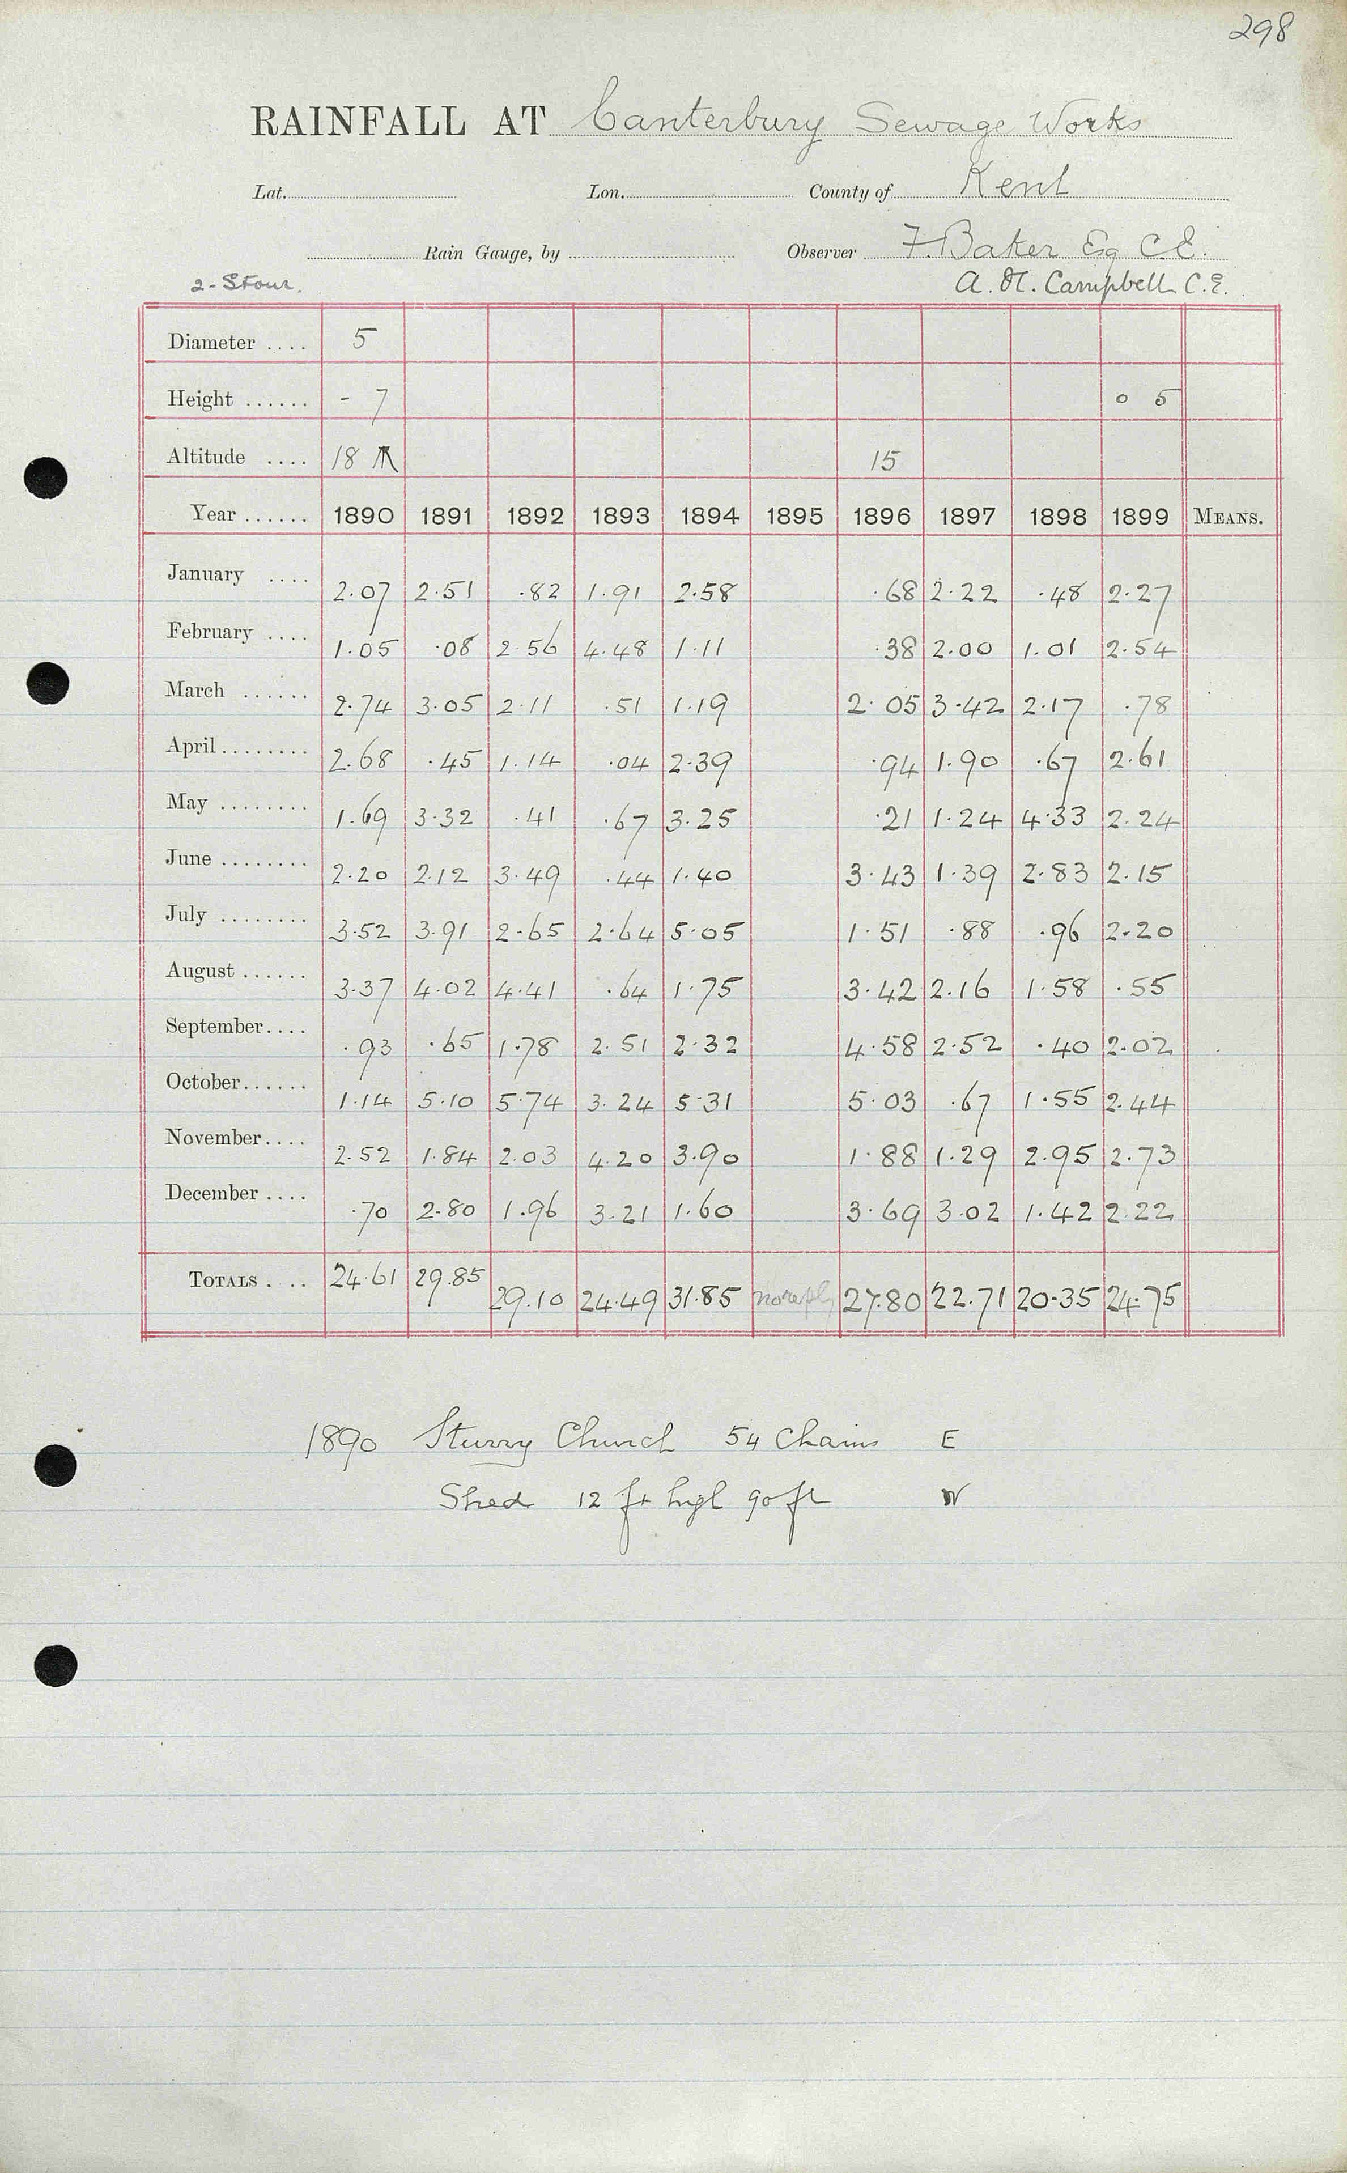 298
RAINFALL AT Canterbury Sewage Works
Lat. Lon. County of Kent
Rain Gauge, by Observer F. Baker Esq C.E.
2-Stour. A. H. Campbell C.E.
Diameter .... 5
Height ...... - 7 0 5
Altitude .... 18 15
Year ...... 1890 1891 1892 1893 1894 1895 1896 1897 1898 1899 MEANS.
January .... 2.07 2.51 .82 1.91 2.58 .68 2.22 .48 2.27
February .... 1.05 .08 2.56 4.48 1.11 .38 2.00 1.01 2.54
March ...... 2.74 3.05 2.11 .51 1.19 2.05 3.42 2.17 .78
April........ 2.68 .45 1.14 .04 2.39 .94 1.90 .67 2.61
May ........ 1.69 3.32 .41 .67 3.25 .21 1.24 4.33 2.24
June ........ 2.20 2.12 3.49 .44 1.40 3.43 1.39 2.83 2.15
July ........ 3.52 3.91 2.65 2.64 5.05 1.51 .88 .96 2.20
August ...... 3.37 4.02 4.41 .64 1.75 3.42 2.16 1.58 .55
September.... .93 .65 1.78 2.51 2.32 4.58 2.52 .40 2.02
October...... 1.14 5.10 5.74 3.24 5.31 5.03 .67 1.55 2.44
November.... 2.52 1.84 2.03 4.20 3.90 1.88 1.29 2.95 2.73
December .... .70 2.80 1.96 3.21 1.60 3.69 3.02 1.42 2.22
TOTALS . .. 24.61 29.85 29.10 24.49 31.85 no reply 27.80 22.71 20.35 24.75
1890 Sturry Church 54 Chains E
Shed 12 ft high 90 ft W